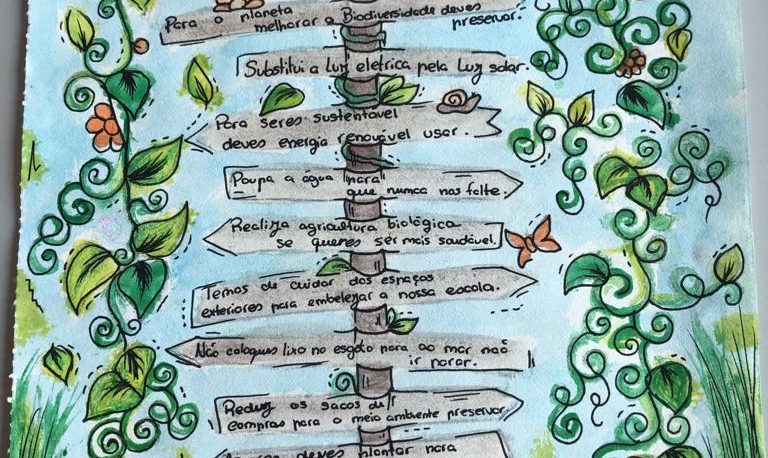 Para o planeta
melhorar a Biodiversidade deves
preservar.
Substitui a luz eletrica pela luz solar.
Para seres sustentável
deves energia renovável usar.
Poupa a água para
que nunca nos falte.
Realiza agricultura biológica
se queres ser mais saudável.
Temos de cuidar dos espaços
exteriores para embelezar a nossa escola.
Não coloques lixo no esgoto para ao mar não
ir parar.
Reduz os sacos de
compras para o meio ambiente preservar.
deves plantar para